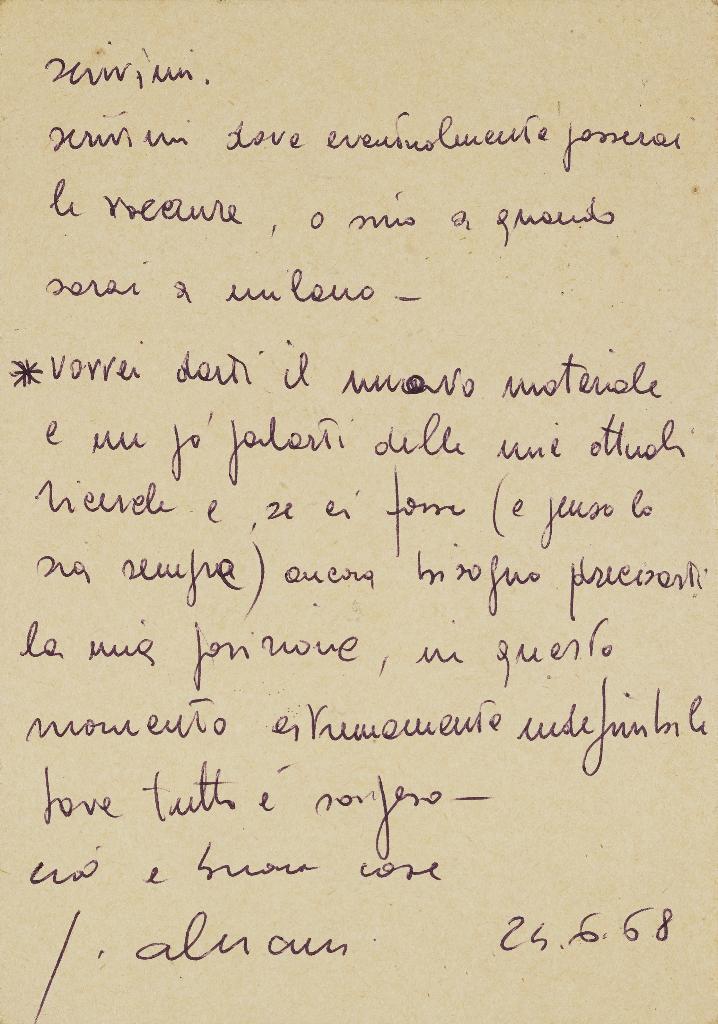 scrivimi.
scrivimi dove eventualmente passerai
le vacanze, o sino a quando
sarai a milano -
* vorrei darti il nuovo materiale
e un po' parlarti delle mie attuali
ricerche e, se ci fosse (e penso lo
sia sempre) ancora bisogno precisarti
la mia posizione, in questo
momento estremamente indefinibile
dove tutto è sospeso -
ciao e buone cose
24.6.68